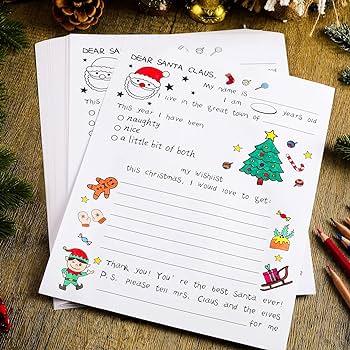 DEAR SANTA CLAUS,
My name is
I am years old
I live in the great town of
This year I have been
naughty
nice
a little bit of both
my wishlist
this christmas, I would love to get:
Thank you! You' re the best Santa ever!
P.S. Please tell mrs. Claus and the elves
for me
DEAR SANTA
This year